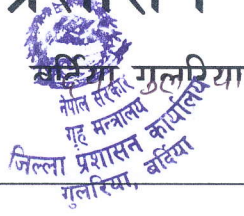 बर्दिया गुलरिया
नेपाल सरकार
गृह मन्त्रालय
जिल्ला प्रशासन कार्यालय
गुलरिया, बर्दिया